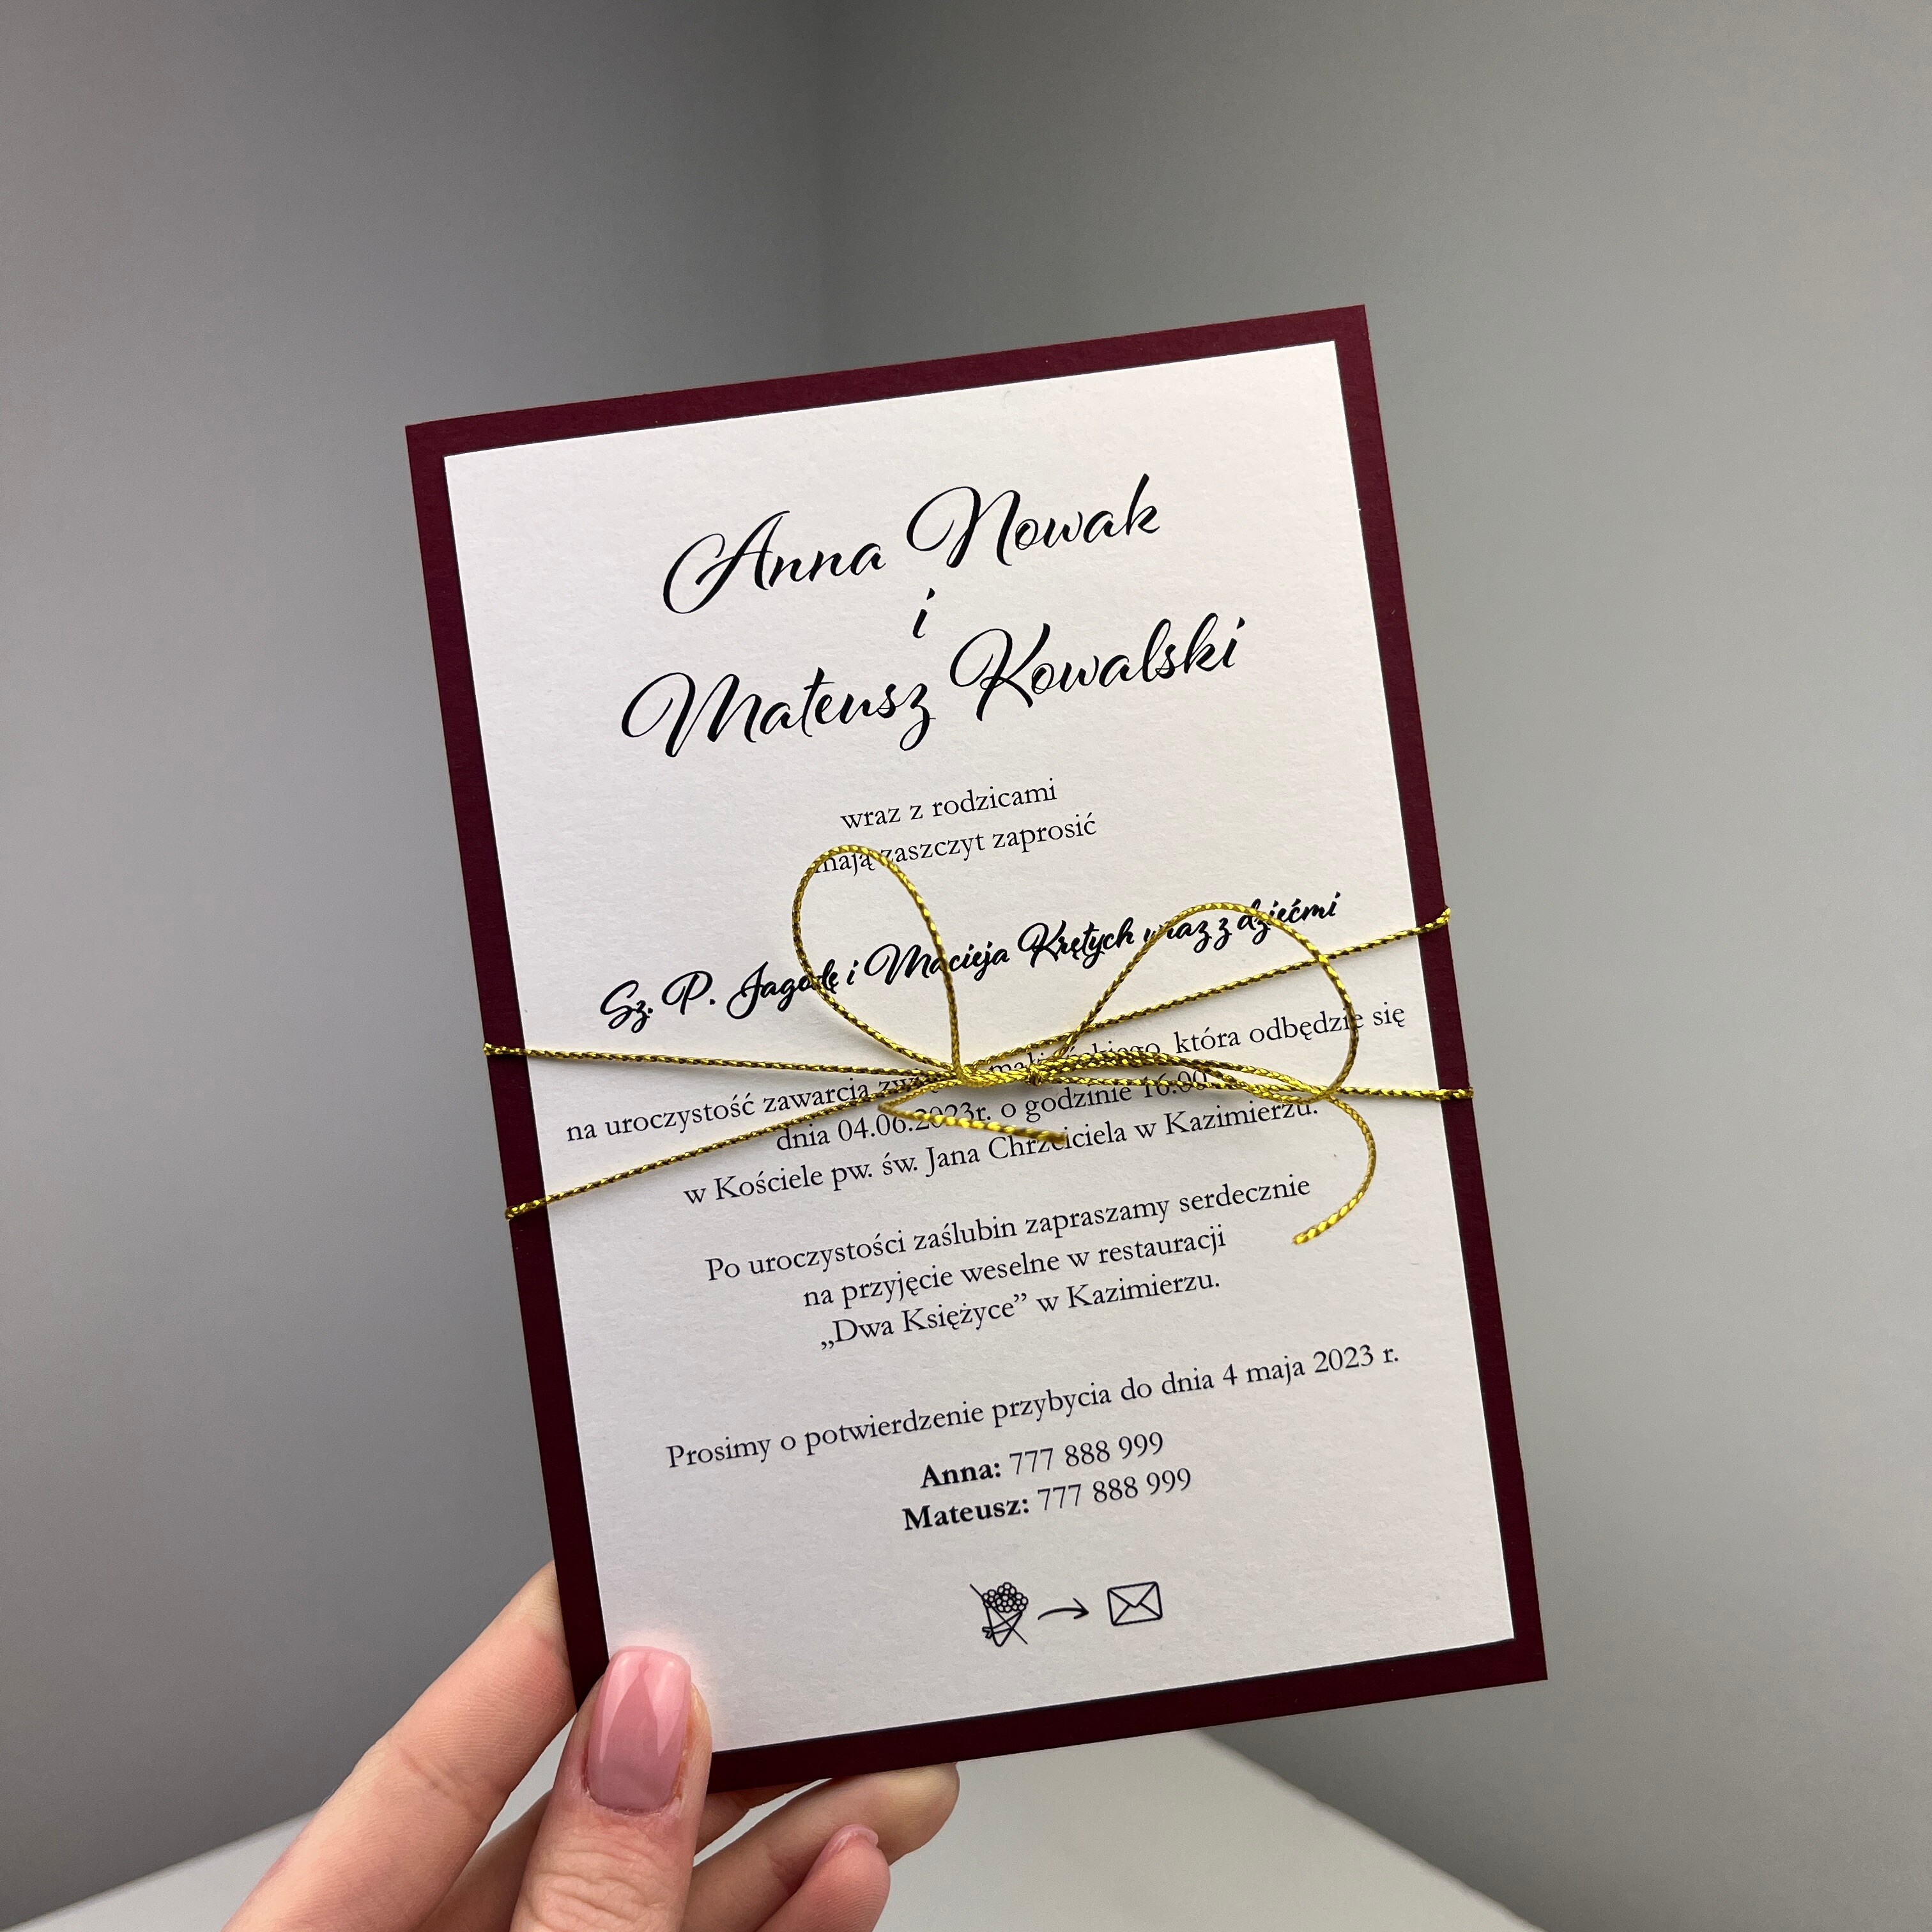 Anna Nowak
i
Mateusz Kowalski
wraz z rodzicami
mają zaszczyt zaprosić
Sz. P. Jagodę i Macieja Krętych wraz z dziećmi
na uroczystość zawarcia która odbędzie się
dnia 04.06.2023r. o godzinie 16:00
w Kościele pw. św. Jana Chrzciciela w Kazimierzu.
Po uroczystości zaślubin zapraszamy serdecznie
na przyjęcie weselne w restauracji
„Dwa Księżyce” w Kazimierzu.
Prosimy o potwierdzenie przybycia do dnia 4 maja 2023 r.
Anna: 777 888 999
Mateusz: 777 888 999